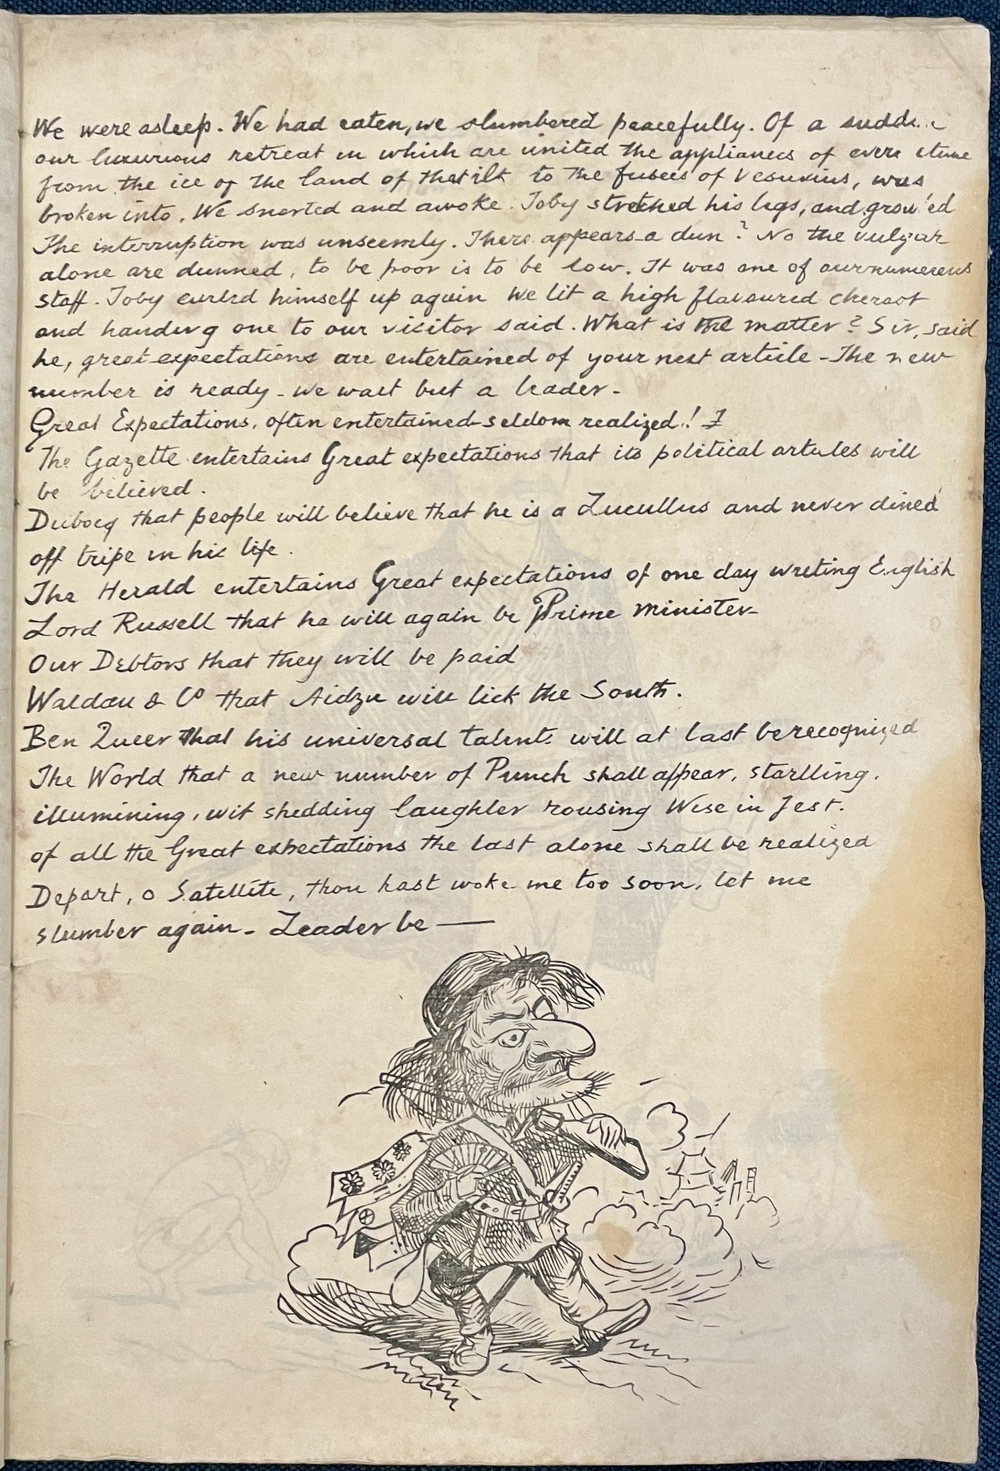 We were asleep. We had eaten, we slumbered peacefully. Of a
our luxurious retreat in which are united the appliances of
from the ice of the land of that ilk to the fusees of Vesuvius, was
broken into. We snorted and awoke. Toby stretched his legs, and growled
The interruption was unseemly. There appears a dun? No the vulgar
alone are dunned, to be poor is to be low. It was one of our numerous
staff. Toby curled himself up again We lit a high flavoured cheroot
and handing one to our visitor said. What is the matter? Sir, said
he, great expectations are entertained of your next article - The new
number is ready - we wait but a leader -
Great Expectations, often entertained - seldom realized!
The Gazette entertains Great expectations that its political articles will
be believed.
Dubocq that people will believe that he is a Lucullus and never dined
off tripe in his life.
The Herald entertains Great expectations of one day writing English
Lord Russell that he will again be Prime Minister -
Our Debtors that they will be paid
Waldau & Co that Aidzu will lick the South.
Ben Queer that his universal talents will at last be recognized
The World that a new number of Punch shall appear, startling,
illumining, wit shedding laughter rousing Wise in Jest.
of all the Great expectations the last alone shall be realized
Depart, o Satellite, thou hast woke me too soon, let me
slumber again - Leader be —